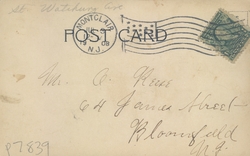 At Watchung Ave
MONTCLAIR
N.J.
POST CARD
Mr. O. Reese
64 James Street
Bloomfield
N.J.
P7839